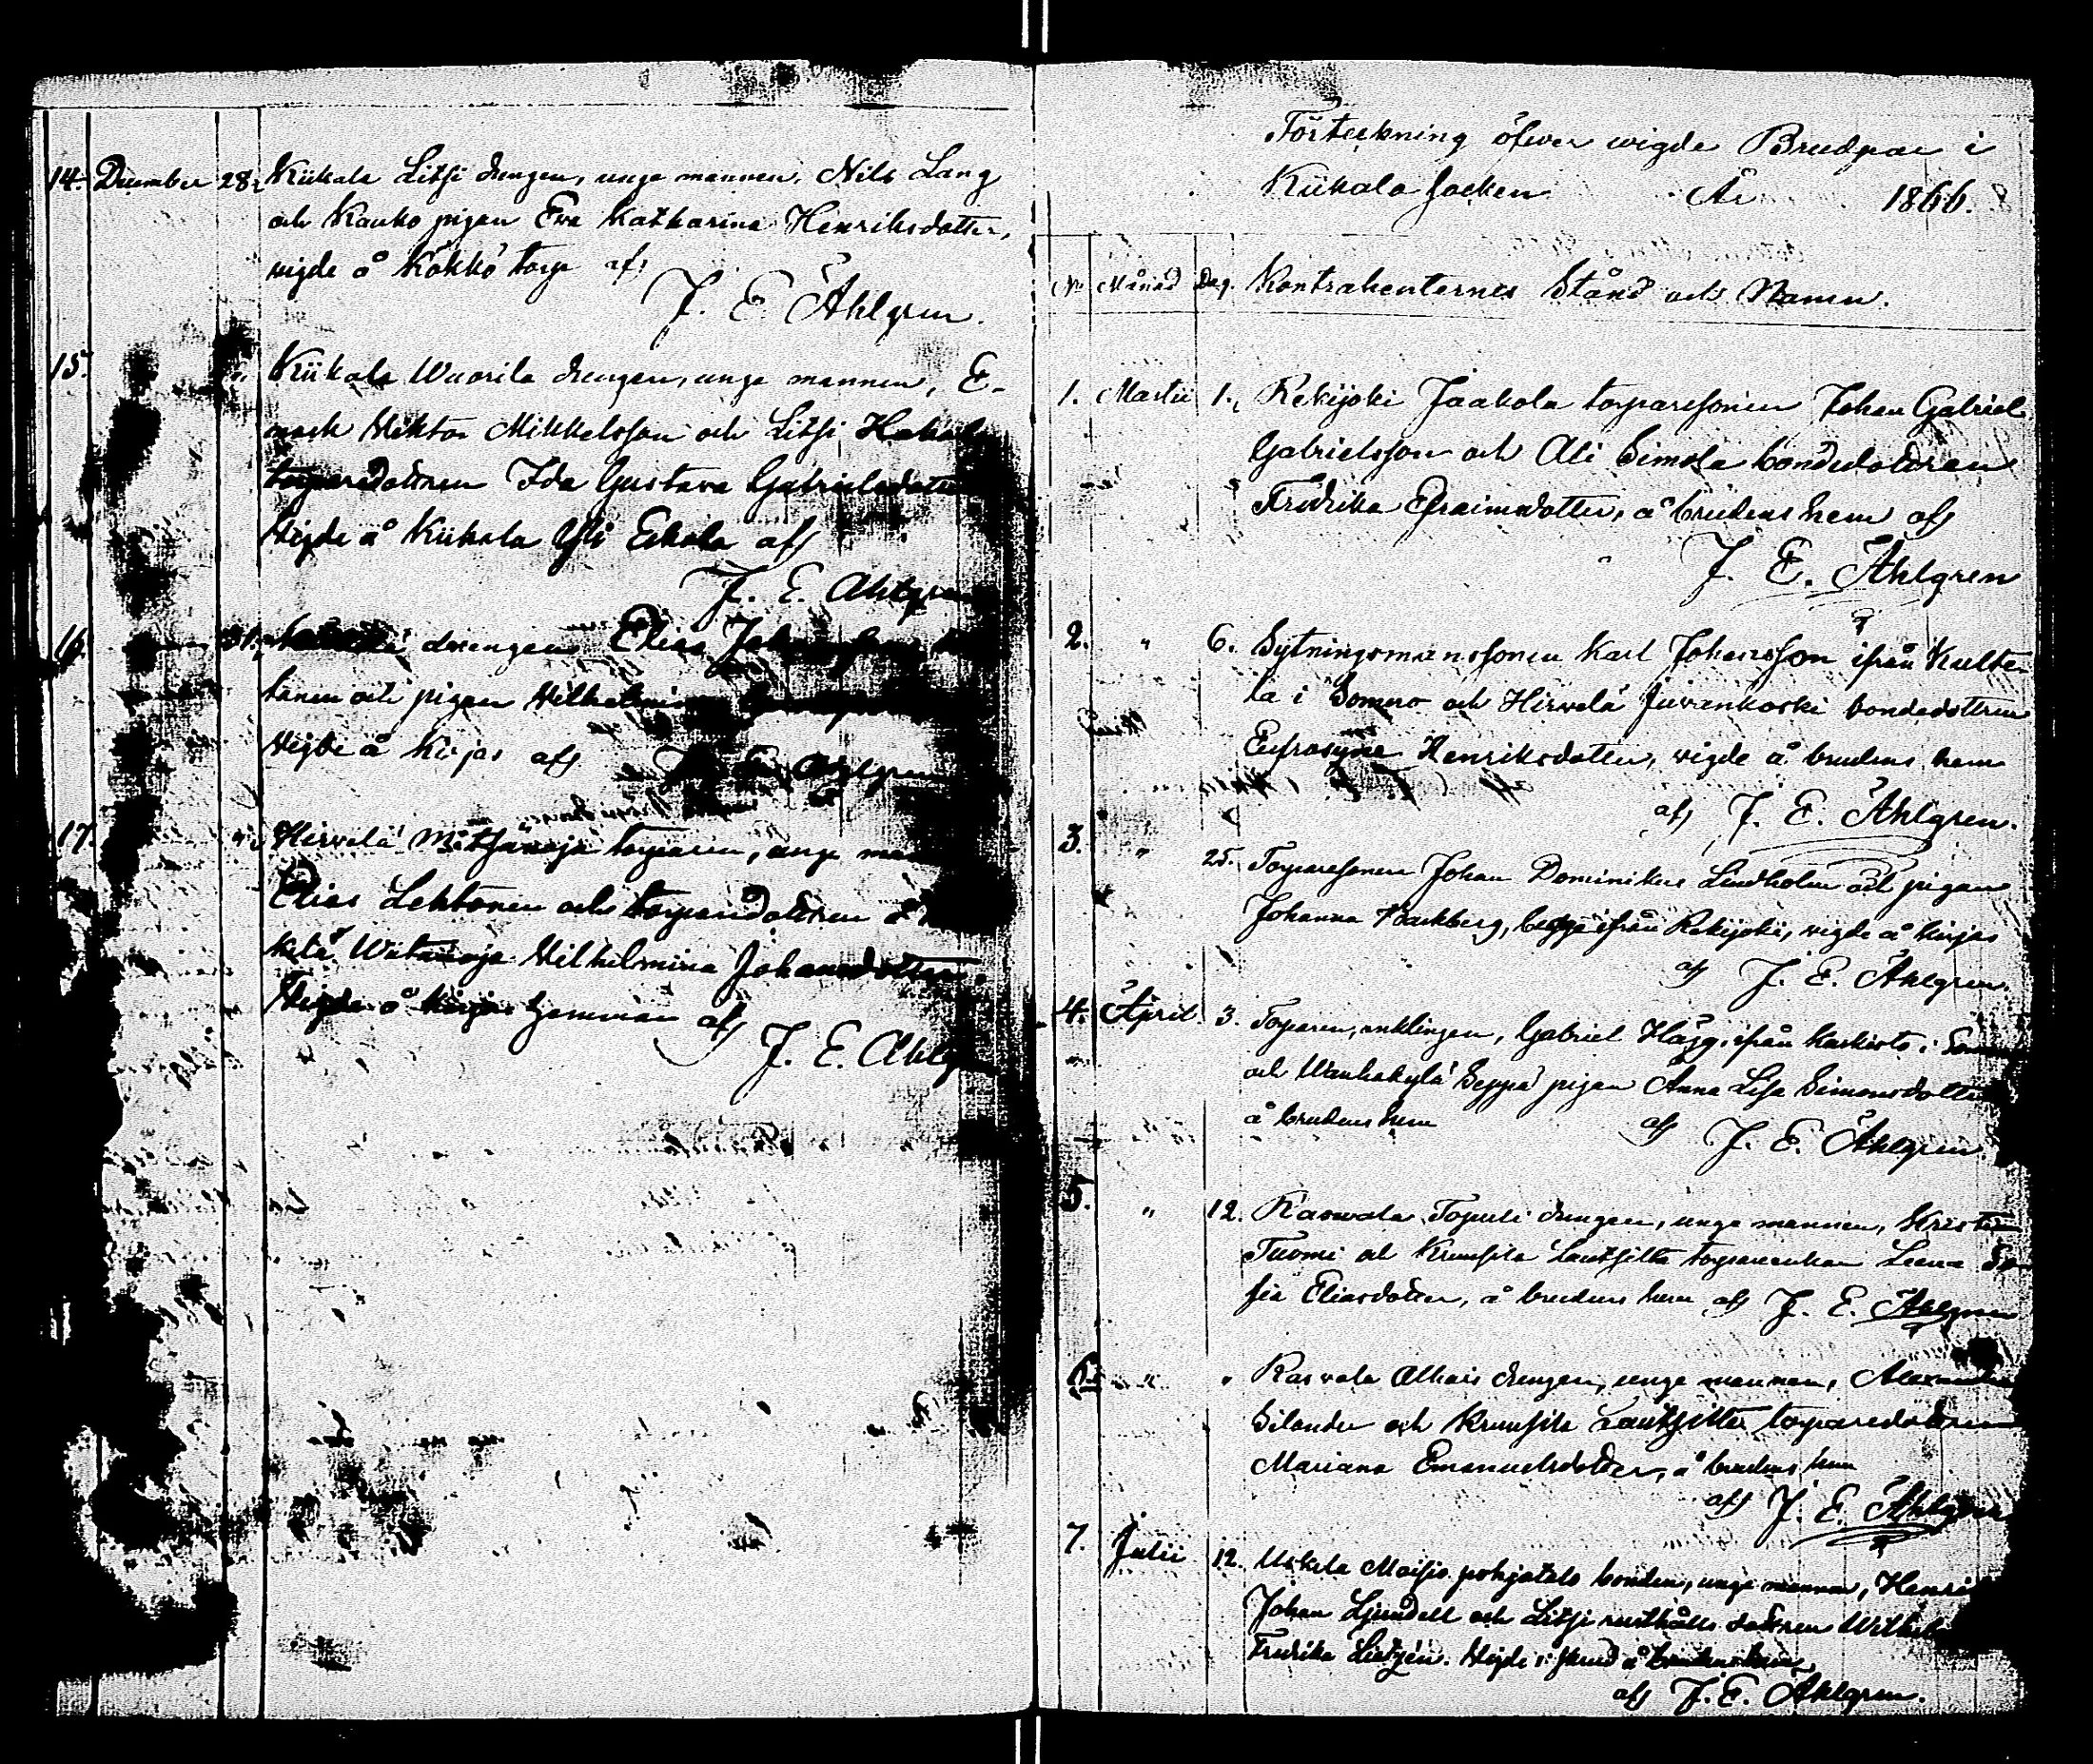 14. December 28. Kiikala Litsi drengen, unge mannen, Nils Lang
och Kauko pigan Eva Katharina Henriksdotter,
vigde å Kökkö torp af
J. E. Åhlgren.
15. " Kiikala Wuorila drengen, unge mannen, E-
nock Wiktor Mikkelsson och Litsi
torparedottren Ida Gustava Gabrielsdotter
Vigde å Kiikala Yli Eskola af
J. E. Åhlgren
16. 31. drengen Elias
och pigan Vilhelmina
Vigde å Kirjas af J. E. Åhlgren
17. " Hirvelä torparen, unge
Elias Lehtonen och torparedottren å
Vilhelmina Johansdotter.
Vigde å af
J. E. Åhlgren
Förteckning öfver vigde Brudpar i
Kiikala Socken År 1866.
No Månad Dag. Kontrahenternes Stånd och Namn.
1. Martii 1. Rekijoki Jaakola torparesonen Johan Gabriel
Gabrielsson och Ali Simola bondedottren
Fredrika Efraimsdotter, å brudens hem af
J. E. Åhlgren
2. " 6. Sytningsmanssonen Karl Johansson ifrån Kulte-
la i Somero och Hirvelä Juvankoski bondedottren
Eufrosyne Henriksdotter, vigde å brudens hem
af J. E. Åhlgren.
3. " 25. Torparesonen Johan Dominikus Lindholm och pigan
Johanna Backberg, begge ifrån Rekijoki, vigde å Kirjas
af J. E. Åhlgren.
4. April 3. Torparen, enklingen, Gabriel Hägg, ifrån Kaskisto i
och Wanhakylä Seppä pigan Anna Lisa Simonsdotter
å brudens hem af J. E. Åhlgren.
5. " 12. Rasvala Topuli drengen, unge mannen,
Tuomi och Kruusila Lautsilta torpareenkan Leena So-
fia Eliasdotter, å brudens hem af J. E. Åhlgren
6. " " Rasvala drengen, unge mannen, Alexander
Silander och Kruusila Lautsilta torparedottren
Mariana Emanuelsdotter, å brudens hem
af J. E. Åhlgren
7. Julii 12. Uskela Moisio pohjatalo bonden, unge mannen,
Johan Ljundell och Litsi rusthålls dottren
Fredrika Lietzén. Vigde i å brudens hem
af J. E. Åhlgren.